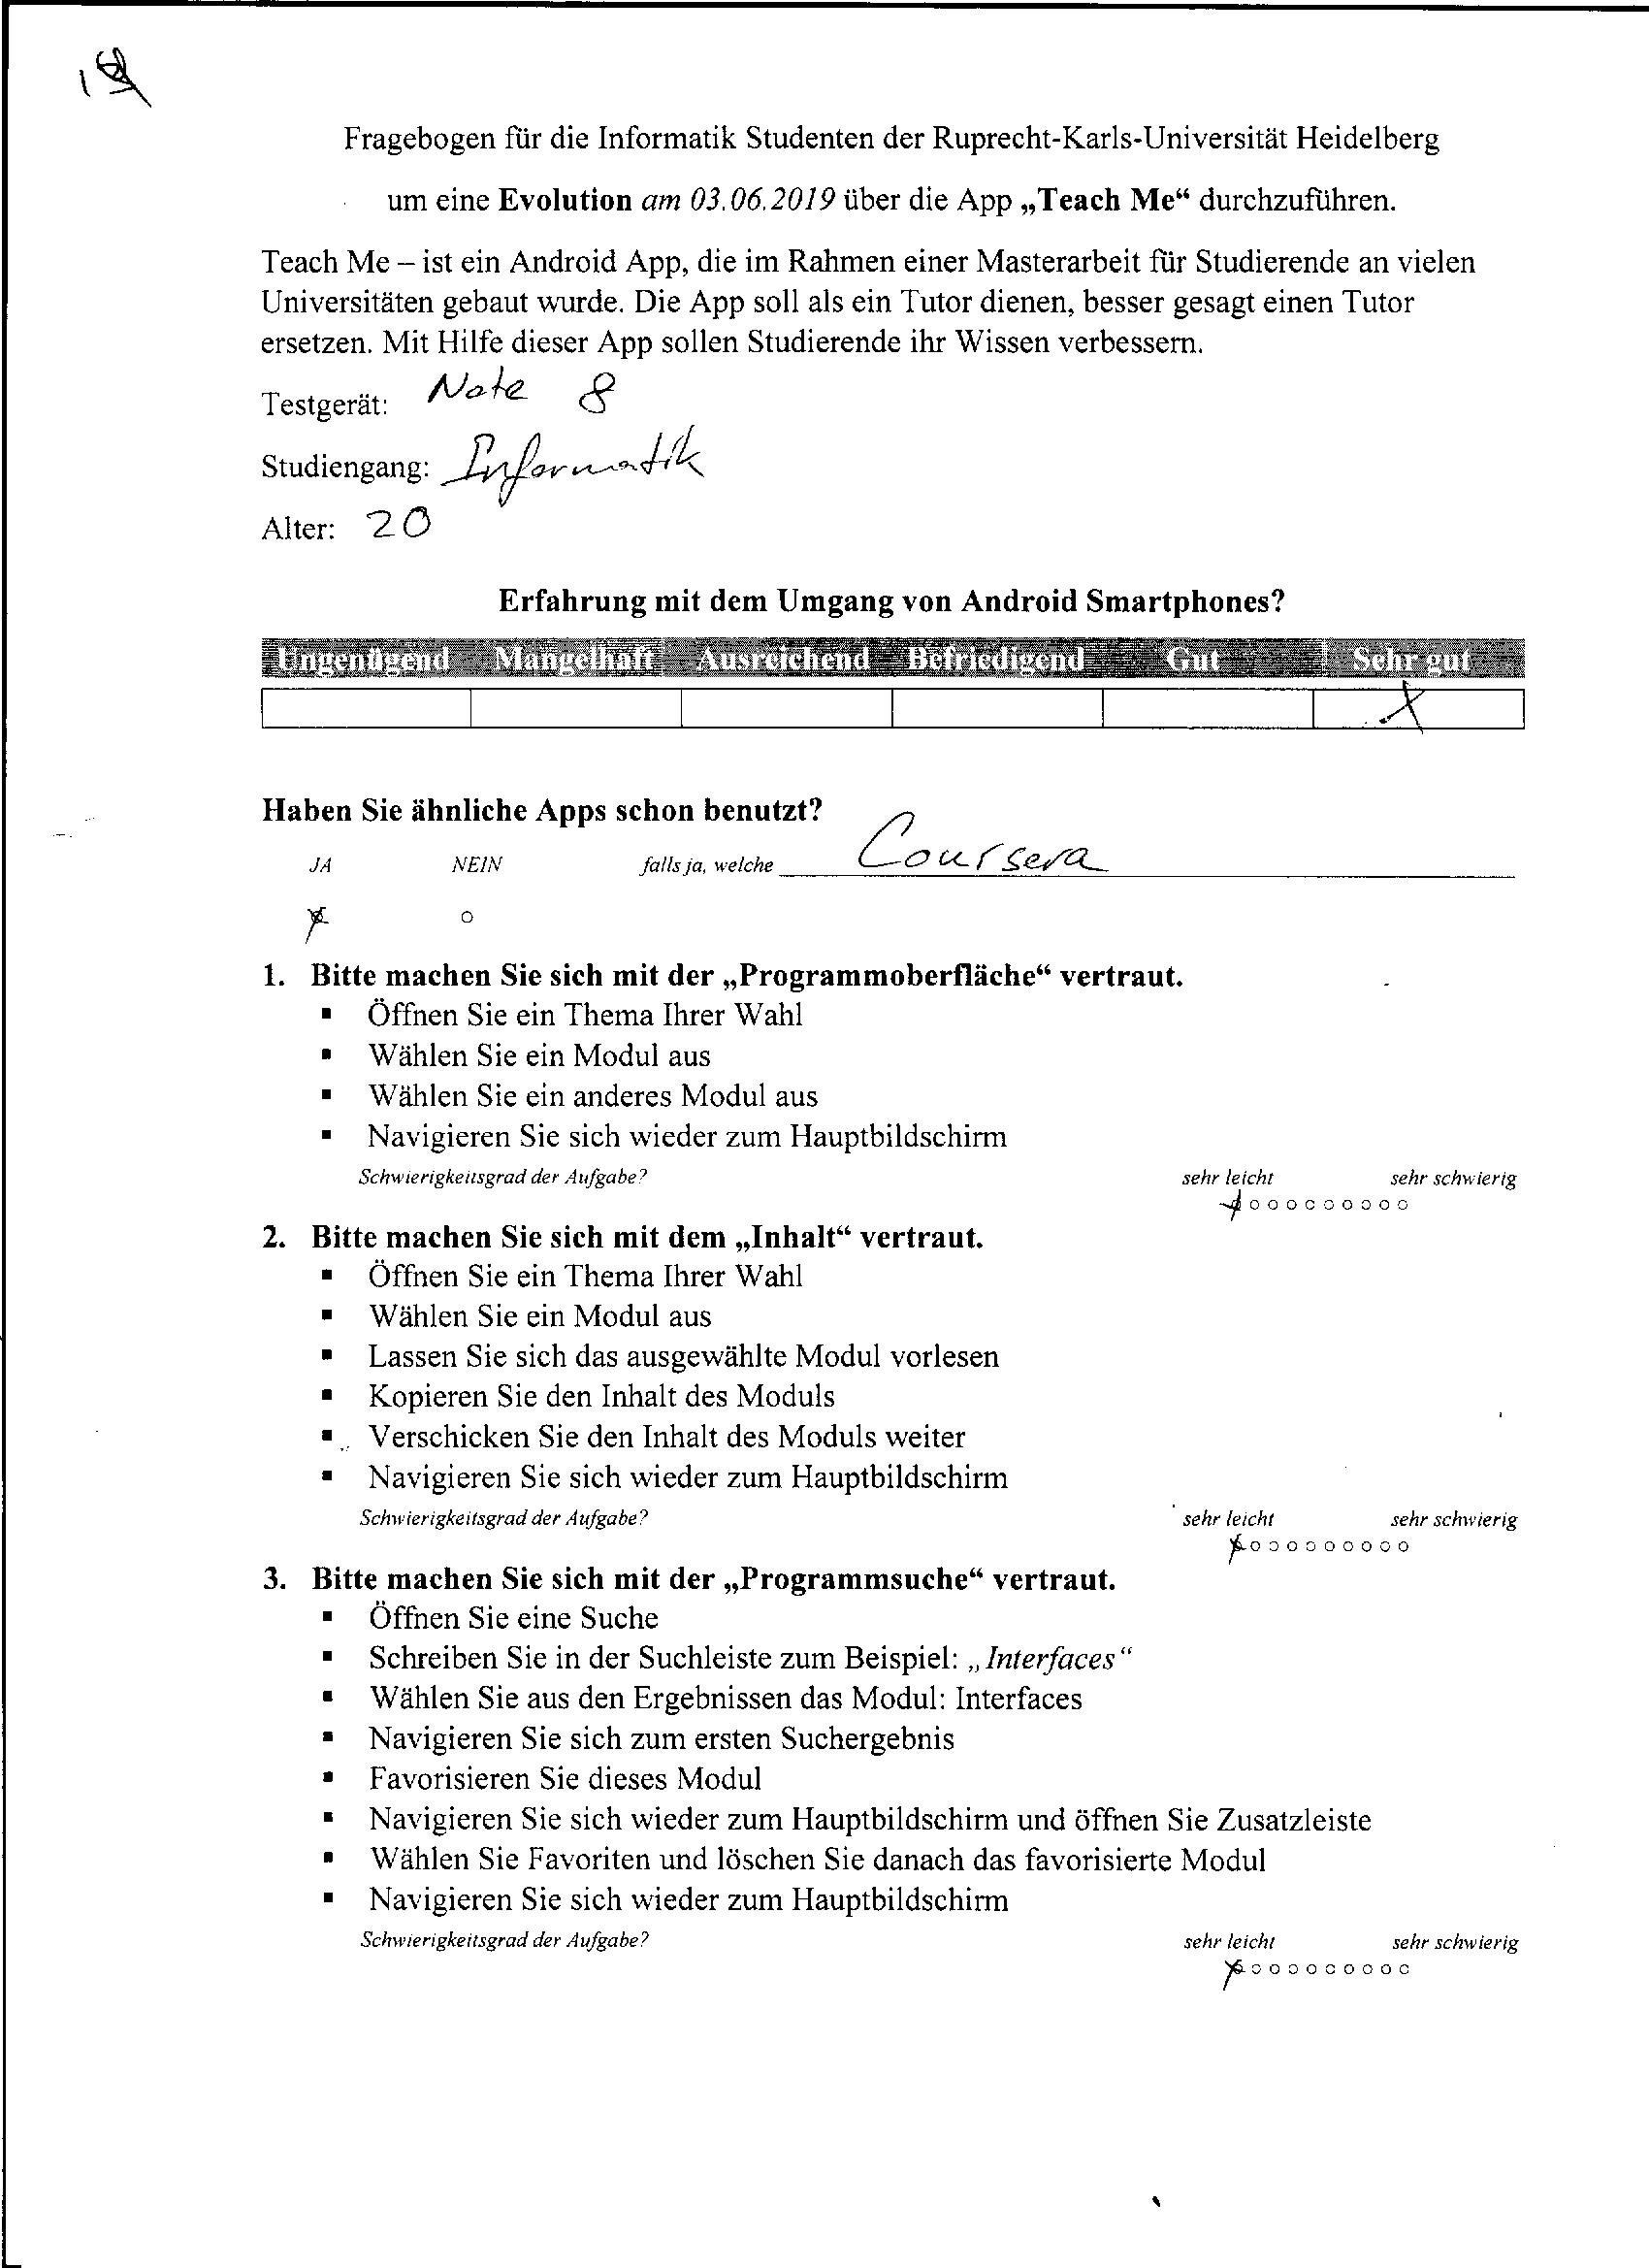 Fragebogen für die Informatik Studenten der Ruprecht-Karls-Universität Heidelberg
um eine Evolution am 03.06.2019 über die App „Teach Me“ durchzuführen.
Teach Me – ist ein Android App, die im Rahmen einer Masterarbeit für Studierende an vielen
Universitäten gebaut wurde. Die App soll als ein Tutor dienen, besser gesagt einen Tutor
ersetzen. Mit Hilfe dieser App sollen Studierende ihr Wissen verbessern.
Testgerät: Note 8
Studiengang: Informatik
Alter: 20
Erfahrung mit dem Umgang von Android Smartphones?
Ungenügend Mangelhaft Ausreichend Befriedigend Gut Sehr gut
X
Haben Sie ähnliche Apps schon benutzt?
JA NEIN falls ja, welche Coursera
1. Bitte machen Sie sich mit der „Programmoberfläche“ vertraut.
▪ Öffnen Sie ein Thema Ihrer Wahl
▪ Wählen Sie ein Modul aus
▪ Wählen Sie ein anderes Modul aus
▪ Navigieren Sie sich wieder zum Hauptbildschirm
Schwierigkeitsgrad der Aufgabe? sehr leicht sehr schwierig
2. Bitte machen Sie sich mit dem „Inhalt“ vertraut.
▪ Öffnen Sie ein Thema Ihrer Wahl
▪ Wählen Sie ein Modul aus
▪ Lassen Sie sich das ausgewählte Modul vorlesen
▪ Kopieren Sie den Inhalt des Moduls
▪ Verschicken Sie den Inhalt des Moduls weiter
▪ Navigieren Sie sich wieder zum Hauptbildschirm
Schwierigkeitsgrad der Aufgabe? sehr leicht sehr schwierig
3. Bitte machen Sie sich mit der „Programmsuche“ vertraut.
▪ Öffnen Sie eine Suche
▪ Schreiben Sie in der Suchleiste zum Beispiel: „Interfaces“
▪ Wählen Sie aus den Ergebnissen das Modul: Interfaces
▪ Navigieren Sie sich zum ersten Suchergebnis
▪ Favorisieren Sie dieses Modul
▪ Navigieren Sie sich wieder zum Hauptbildschirm und öffnen Sie Zusatzleiste
▪ Wählen Sie Favoriten und löschen Sie danach das favorisierte Modul
▪ Navigieren Sie sich wieder zum Hauptbildschirm
Schwierigkeitsgrad der Aufgabe? sehr leicht sehr schwierig